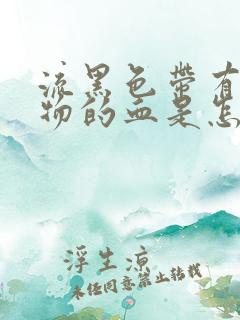 流黑色带有
物的血是怎
浮生凉
未经同意禁止转载